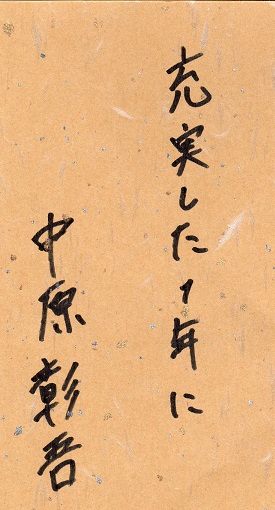 充実した1年に
中原彰吾